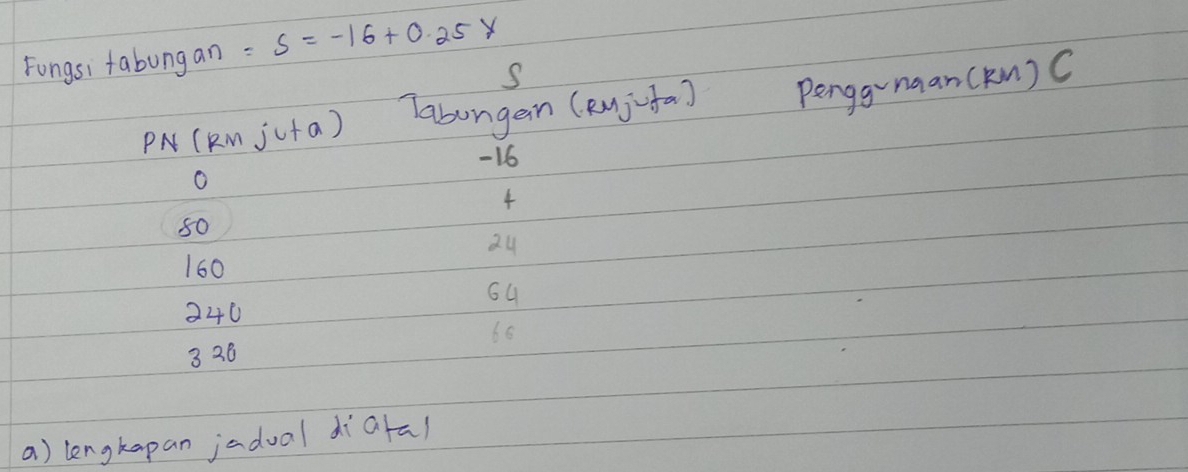 Fungsi tabungan = S = -16 + 0.25 Y
PN (RM juta) S Tabungan (RM juta) Penggunaan (RM) C
0 -16
80 4
160 24
240 64
320 66
a) lengkapan jadual di atas